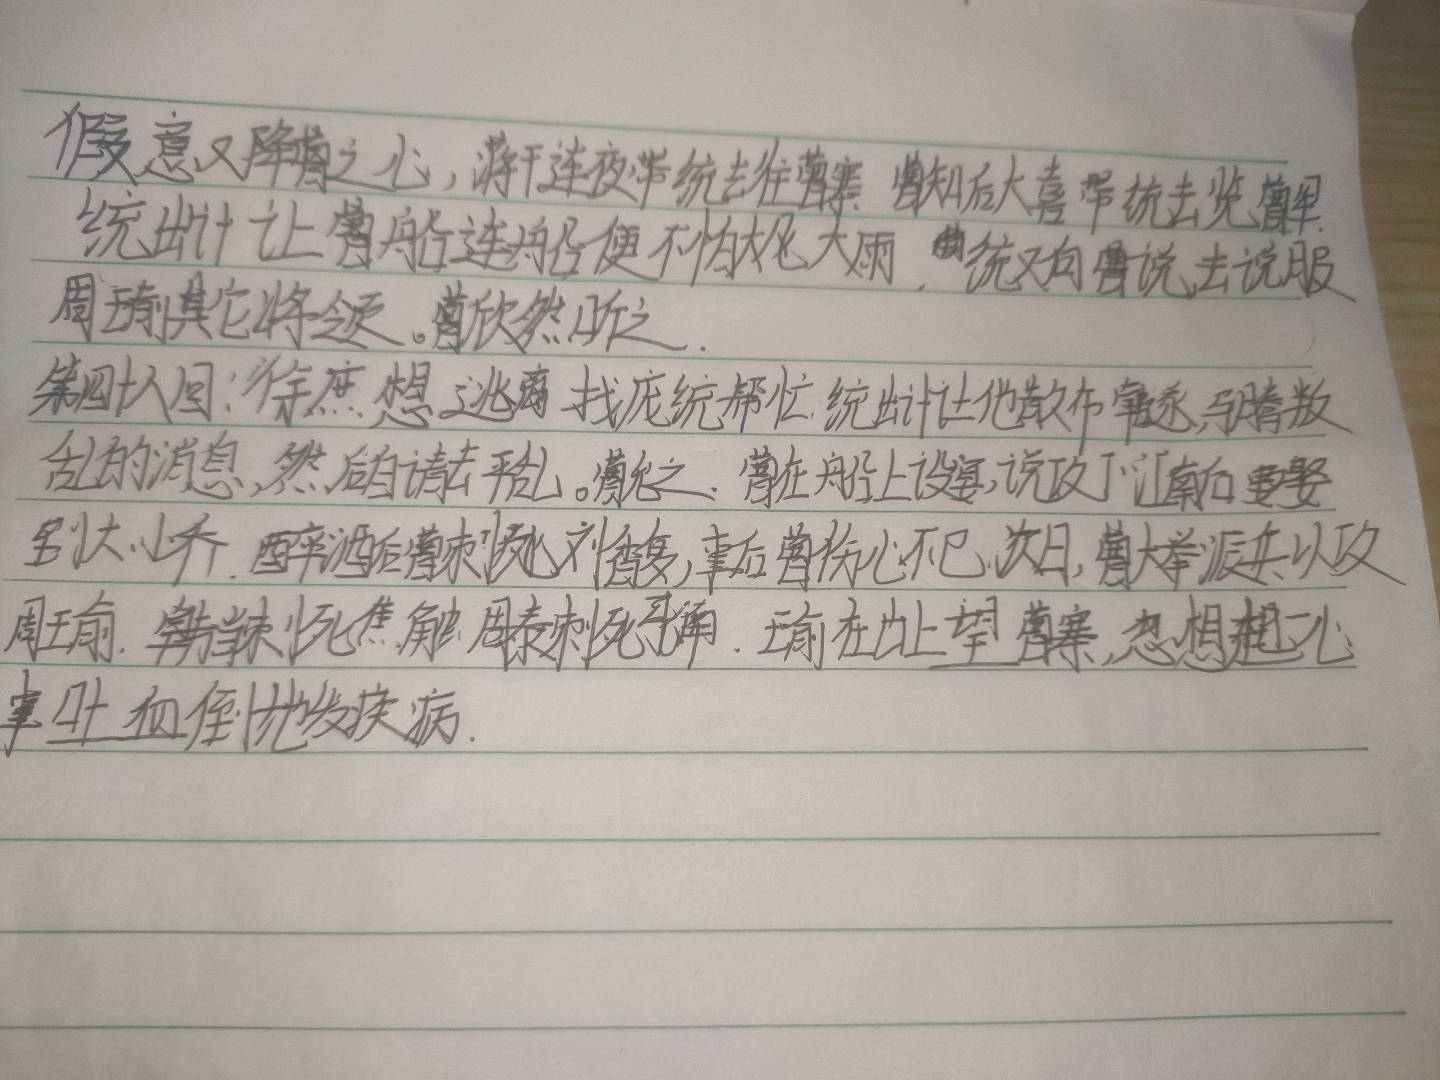 假意又降曹之心，蒋干连夜带统去往曹寨.曹知后大喜带统去览曹军.
统出计让曹船连船便不怕大风大雨.统又向曹说去说服
周瑜其它将领。曹欣然听之.
第四十八回：徐庶想逃离找庞统帮忙.统出计让他散布韩遂,马腾叛
乱的消息,然后自请去平乱。曹允之.曹在船上设宴,说攻下江南后要娶
大小乔.醉酒后曹刺死刘馥,事后曹伤心不已,次日,曹大举派兵以攻
周瑜.韩当刺死焦触周泰刺死张南.瑜在山上望曹寨,忽想起一心
事吐血倒地发疾病.